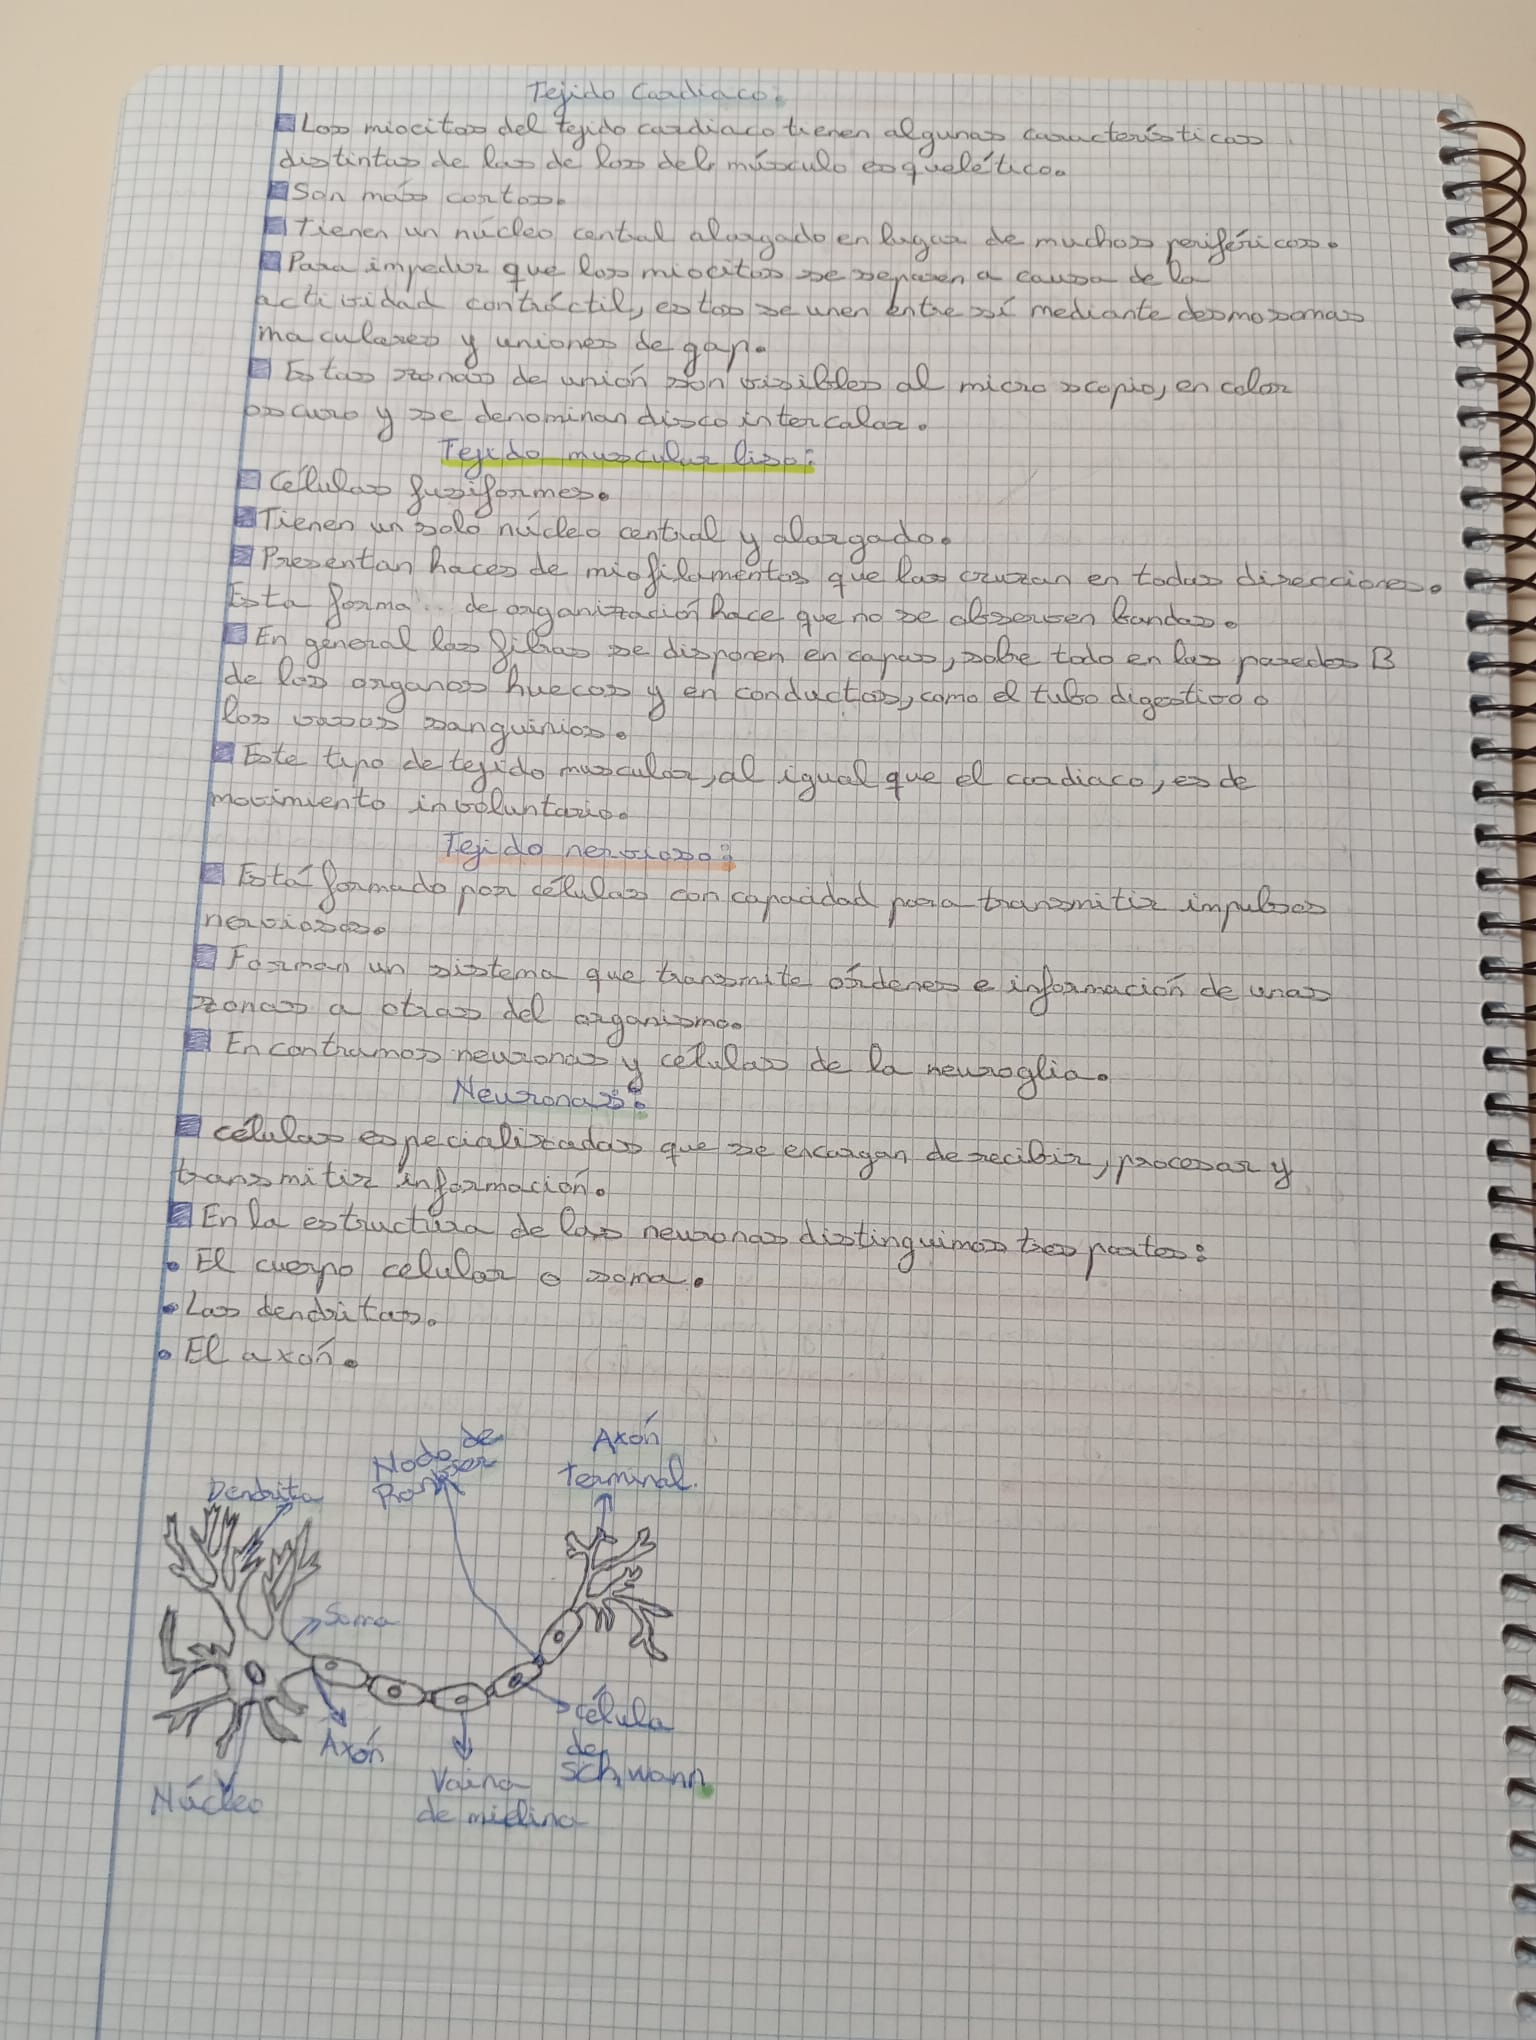 Tejido Cardiaco:
Los miocitos del tejido cardiaco tienen algunas características
distintas de las de los del músculo esquelético.
Son más cortos.
Tienen un núcleo central alargado en lugar de muchos periféricos.
Para impedir que los miocitos se separen a causa de la
actividad contráctil, estos se unen entre sí mediante desmosomas
maculares y uniones de gap.
Estas zonas de unión son visibles al microscopio, en color
oscuro y se denominan disco intercalar.
Tejido muscular liso:
Células fusiformes.
Tienen un solo núcleo central y alargado.
Presentan haces de miofilamentos que las cruzan en todas direcciones.
Esta forma de organización hace que no se observen bandas.
En general las fibras se disponen en capas, sobre todo en las paredes B
de los organos huecos y en conductos, como el tubo digestivo o
los vasos sanguinios.
Este tipo de tejido muscular, al igual que el cardiaco, es de
movimiento involuntario.
Tejido nervioso:
Está formado por células con capacidad para transmitir impulsos
nerviosos.
Forman un sistema que transmite órdenes e información de unas
zonas a otras del organismo.
Encontramos neuronas y células de la neuroglia.
Neuronas:
células especializadas que se encargan de recibir, procesar y
transmitir información.
En la estructura de las neuronas distinguimos tres partes:
• El cuerpo celular o soma.
• Las dendritas.
• El axón.
Nodo de
Ranvier
Axón
terminal.
Dendrita
Soma
Axón
Núcleo
Vaina
de mielina
célula
de
Schwann.